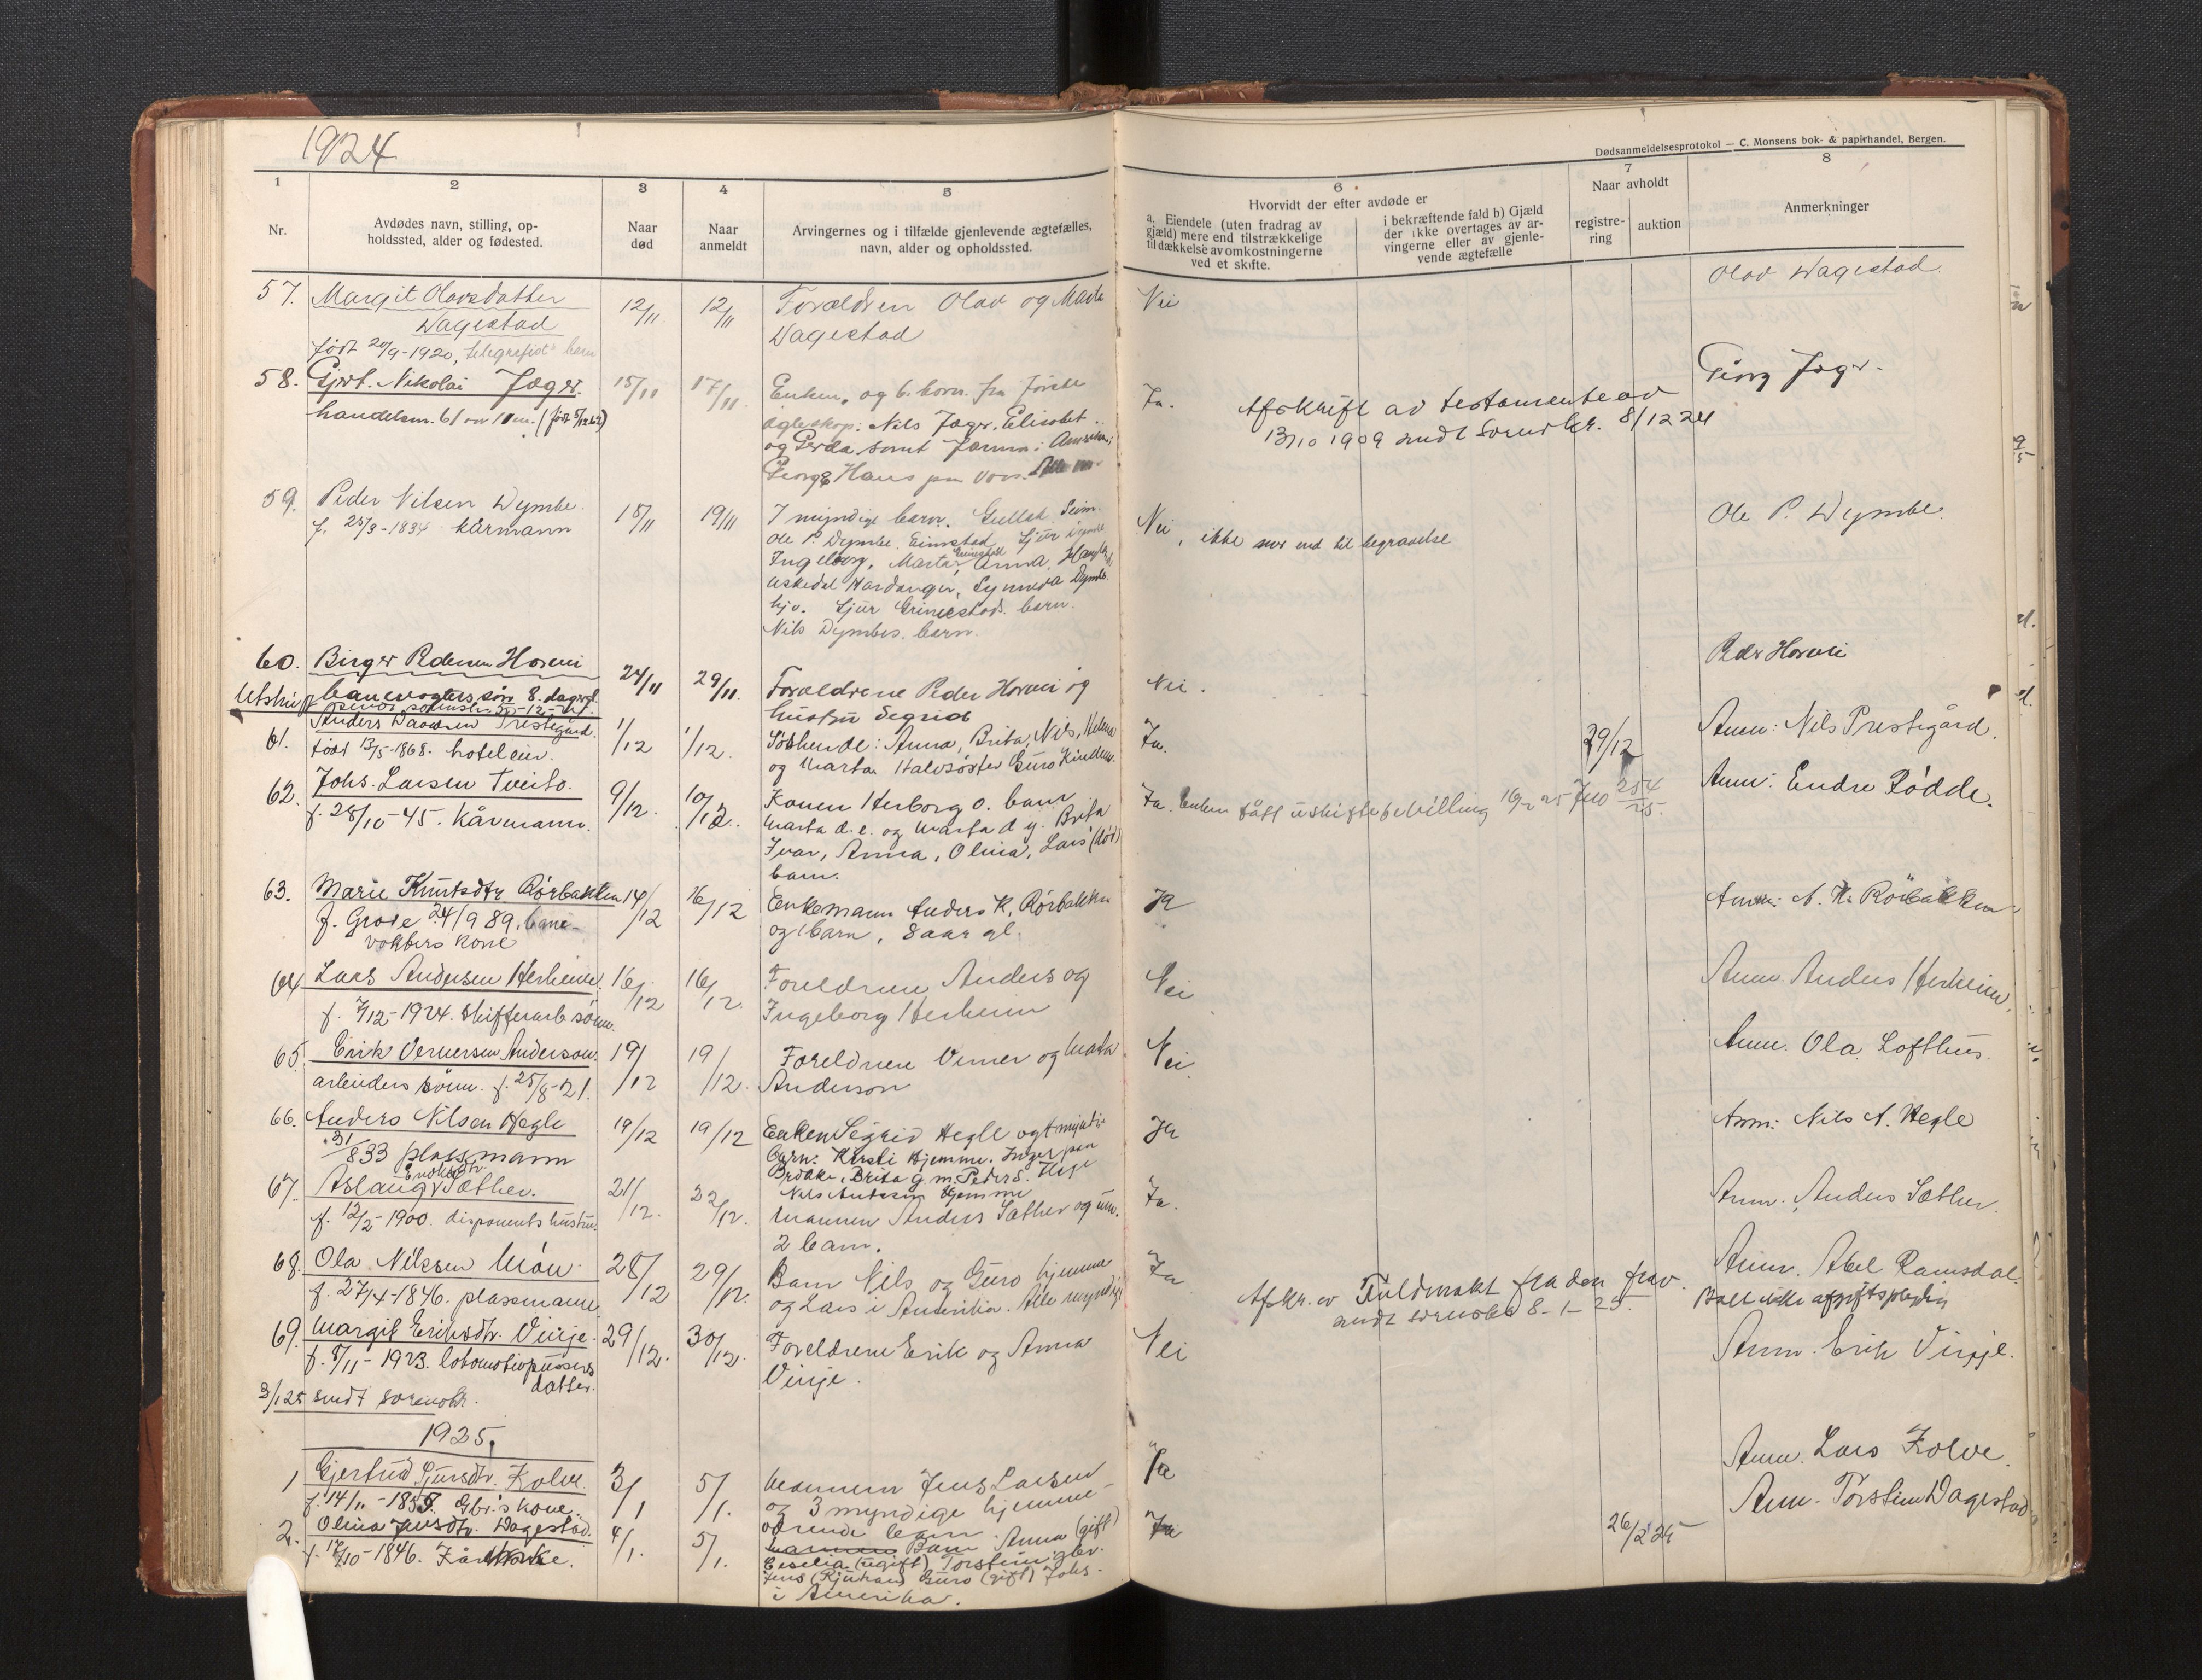 1924
Dødsanmeldelsesprotokol — C. Monsens bok- & papirhandel, Bergen.
1
2
3
4
5
6
7
8
Nr.
Avdødes navn, stilling, op-
holdssted, alder og fødested.
Naar
død
Naar
anmeldt
Arvingernes og i tilfælde gjenlevende ægtefælles,
navn, alder og opholdssted.
Hvorvidt der efter avdøde er
a. Eiendele (uten fradrag av
gjæld) mere end tilstrækkelige
til dækkelse av omkostningerne
ved et skifte.
i bekræftende fald b) Gjæld
der ikke overtages av ar-
vingerne eller av gjenle-
vende ægtefælle
Naar avholdt
registre-
ring
auktion
Anmerkninger
57. Margit Olavsdatter
Wagestad
født 20/9-1920, telegrafist barn
12/11
12/11
Forældren Olav og Marta
Wagestad
Nei
Olav Wagestad
58. Gjert. Nikolai Jæger.
handelsm. 61 1 m. (født
15/11
17/11
Enken, og 6. born. fra første
ægteskap: Nils Jæger. Elisabet
og Gerda samt Amerika;
Georg & Hans paa Voss.
Ja.
Afskrift av testamente av
13/10 1909 sendt Sorenskr. 8/12 24
Georg Jæger.
59. Peder Nilsen Dymbe.
f. 25/3-1834 kårmann
18/11
19/11
7 myndige barn. Gullak Seim.
Ole P. Dymbe. Sjur
Ingeborg, Marta, Anna,
Hardanger, Synneva Dymbe
hjv. Sjur Grimestads barn.
Nils Dymbes. barn.
Nei, ikke mer end til begravelse
Ole P. Dymbe.
60. Birger Pedersen Horvei
banevogters søn 8. dager gl.
24/11
29/11.
Foreldrene Peder Horvei og
hustru Segrid
Nei.
Peder Horvei
Utskrift
61. Anders Prestegård.
født 13/5-1868. hoteleier.
1/12
1/12.
Søskende: Anna, Brita, Nils, Helena
og Marta. Halvsøster Guro Kindem.
Ja.
29/12
Anm: Nils Prestegård.
62. Johs. Larsen Tveito.
f. 28/10-45. Kårmann.
9/12.
10/12.
Konen Herborg o. barn
Marta d. e. og Marta d y. Brita
Ivar, Anna, Olina, Lars (død)
barn.
Ja. Enken fått uskiftebevilling 16/2 25 Jno 254/25.
Anm: Endre Rødde.
63. Marie Knutsdtr Rørbakken
f. Grove 24/9 89. bane-
vokters kone
14/12
16/12
Enkemann Anders K. Rørbakken
og 1 barn, 8 aar gl.
Ja
Anm: A. K. Rørbakken
64 Lars Andersen Herheim.
f. 7/12-1924. Skiferarb. sønn.
16/12
16/12.
Foreldrene Anders og
Ingeborg Herheim
Nei
Anm. Anders Herheim.
65. Erik Vernersen Anderson.
arbeiders sønn. f. 25/8-21.
19/12
19/12.
Foreldrene Verner og Marta
Anderson
Nei.
Anm. Ola Lofthus.
66. Anders Nilsen Hegle
31/833 plassmann
19/12
19/12
Enken Segrid Hegle og 4 myndige
barn: Kirsti hjemme. Inger paa
Brekke, Brita g m. Peder S.
Nils Andersen hjemme
Ja
Anm: Nils A. Hegle
67. Aslaug Sæther.
f. 12/2-1900. disponents hustru.
21/12.
22/12.
Mannen Anders Sæther og um.
2 barn.
Ja.
Anm. Anders Sæther.
68. Ola Nilssen Møn
f. 27/4-1846. plassmann
28/12
29/12.
Barn Nils og Guro hjemme
og Lars i Amerika. Alle myndige
Ja
Afskr. av Fuldmakt fra den frav.
sendt sorenskr 8-1-25.
Anm. Abel Ramsdal.
Boet ikke afgiftspligtig
69. Margit Eriksdtr. Vinje.
f. 8/11-1923. lokomotivpussers
datter.
29/12.
30/12.
Foreldrene Erik og Anna
Vinje.
Nei
Anm. Erik Vinje.
3/1 25 sendt sorenskr.
1925.
1 Gjertrud Sjursdtr. Kolve.
f. 14/11-1858. Gbr's kone.
3/1
5/1.
Mannen Jens Larsen
og 3 myndige hjemme-
værende barn.
Ja
Anm. Lars Kolve.
2. Olina Jensdtr. Wagestad.
f. 12/10-1846. Kårenke.
4/1.
5/1.
Barn Anna (gift)
Cecilia (ugift) Torstein gbr.
Jens (Rjukan) Guro (gift) Johs.
i Amerika.
Ja
26/2 25
Anm. Torstein Wagestad.